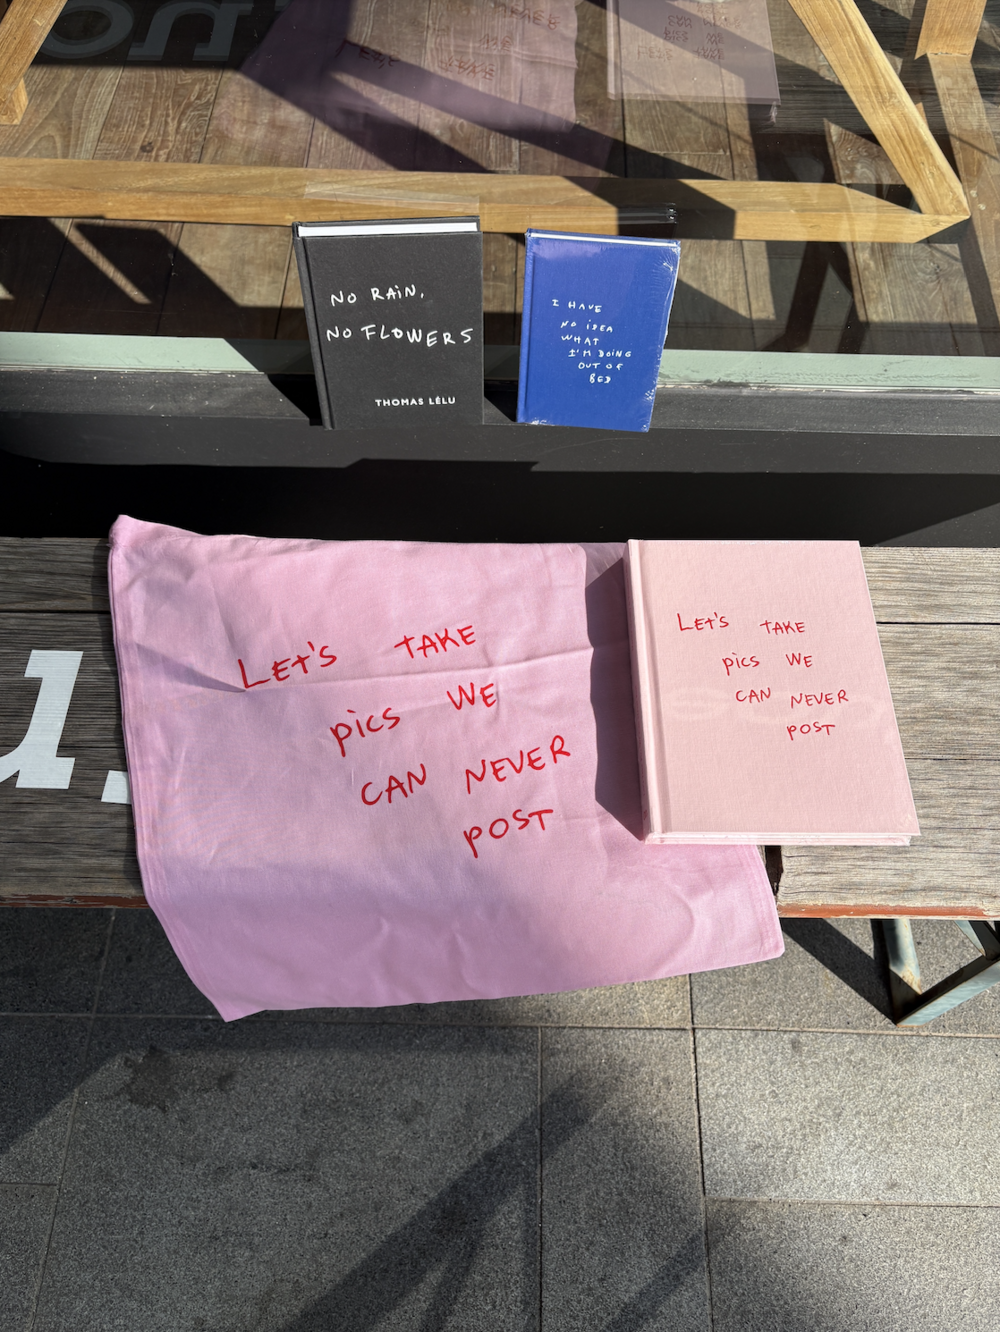 NO RAiN,
NO FLOWERS
THOMAS LÉLU
I HAVE
NO iDEA
WHAT
I'M DOiNG
OUT OF
BED
LEt's TAKE
pics WE
CAN NEVER
POST
LEt's TAKE
pics WE
CAN NEVER
POST